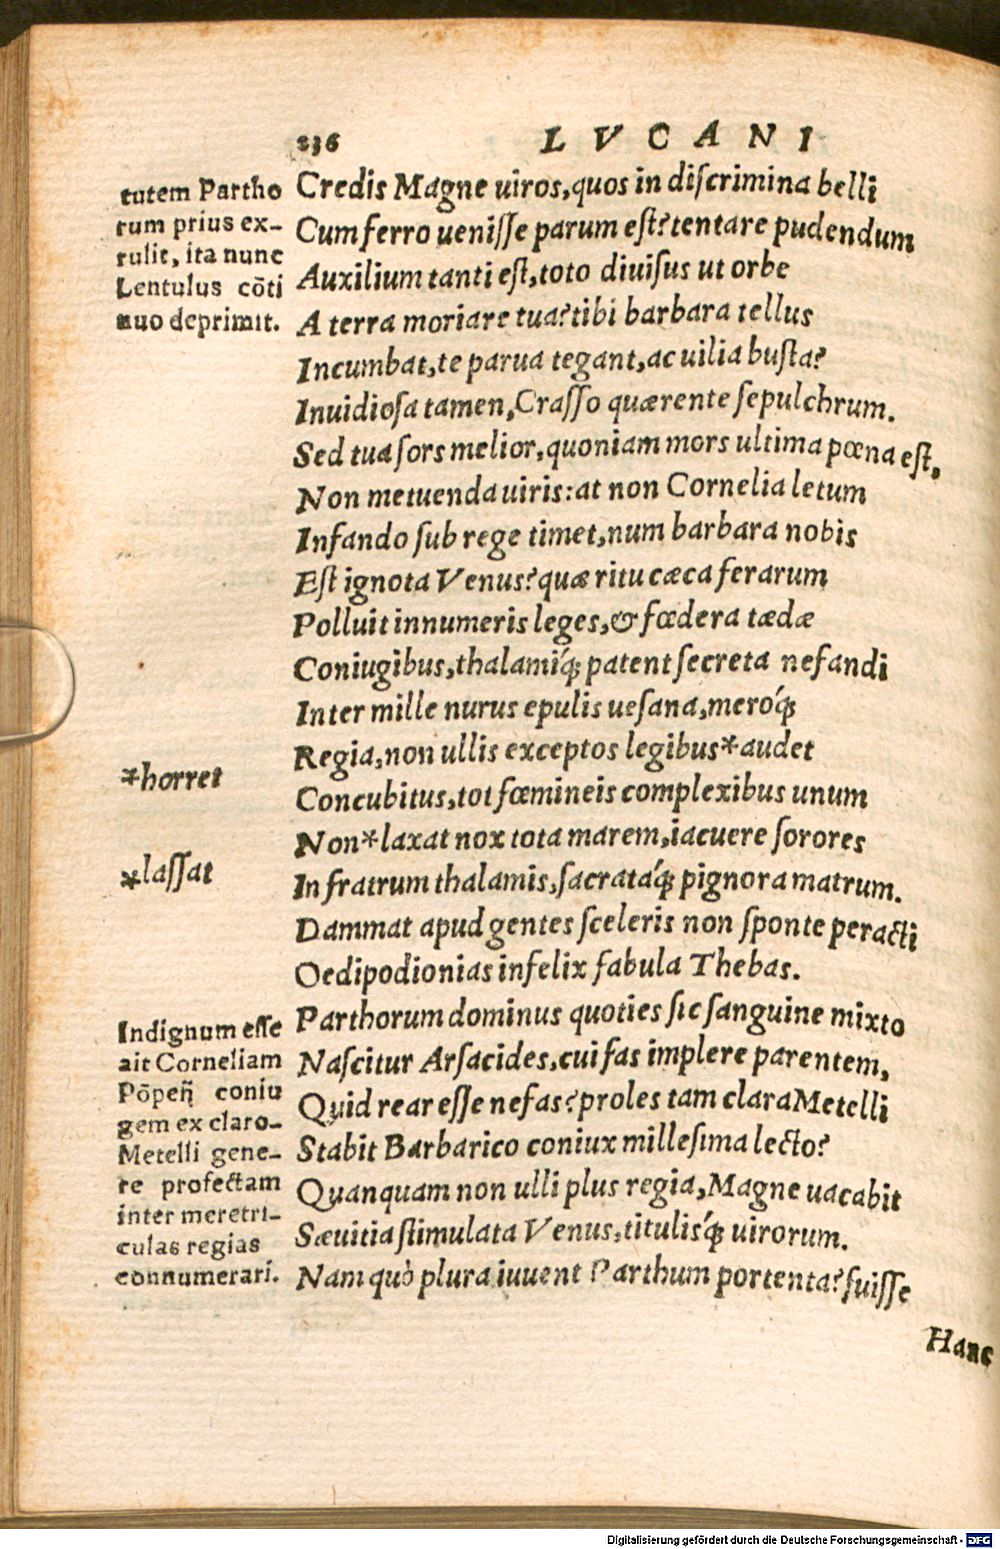 236 LVCANI
tutem Partho
rum prius ex-
tulit, ita nunc
Lentulus cōti
nuo deprimit.
Credis Magne uiros,quos in diſcrimina belli
Cum ferro ueniſſe parum eſt?tentare pudendum
Auxilium tanti eſt,toto diuiſus ut orbe
A terra moriare tua?tibi barbara tellus
Incumbat,te parua tegant,ac uilia buſta?
Inuidioſa tamen,Craſſo quærente ſepulchrum.
Sed tua ſors melior,quoniam mors ultima pœna eſt,
Non metuenda uiris:at non Cornelia letum
Infando ſub rege timet,num barbara nobis
Eſt ignota Venus?quæ ritu cæca ferarum
Polluit innumeris leges,& fœdera tædæ
Coniugibus,thalamiq́; patent ſecreta nefandi
Inter mille nurus epulis ueſana,meroq́;
Regia,non ullis exceptos legibus*audet
Concubitus,tot fœmineis complexibus unum
Non*laxat nox tota marem,iacuere ſorores
In fratrum thalamis,ſacrataq́; pignora matrum.
Dammat apud gentes ſceleris non ſponte peracti
Oedipodionias infelix fabula Thebas.
Parthorum dominus quoties ſic ſanguine mixto
Naſcitur Arſacides,cui fas implere parentem,
Quid rear eſſe nefas?proles tam clara Metelli
Stabit Barbarico coniux milleſima lecto?
Quanquam non ulli plus regia,Magne uacabit
Sæuitia ſtimulata Venus,titulisq́; uirorum.
Nam quò plura iuuent Parthum portenta?fuiſſe
*horret
*laſſat
Indignum eſſe
ait Corneliam
Pōpeij coniu
gem ex claro-
Metelli gene-
re profectam
inter meretri-
culas regias
connumerari.
Hanc
Digitalisierung gefördert durch die Deutsche Forschungsgemeinschaft - DFG